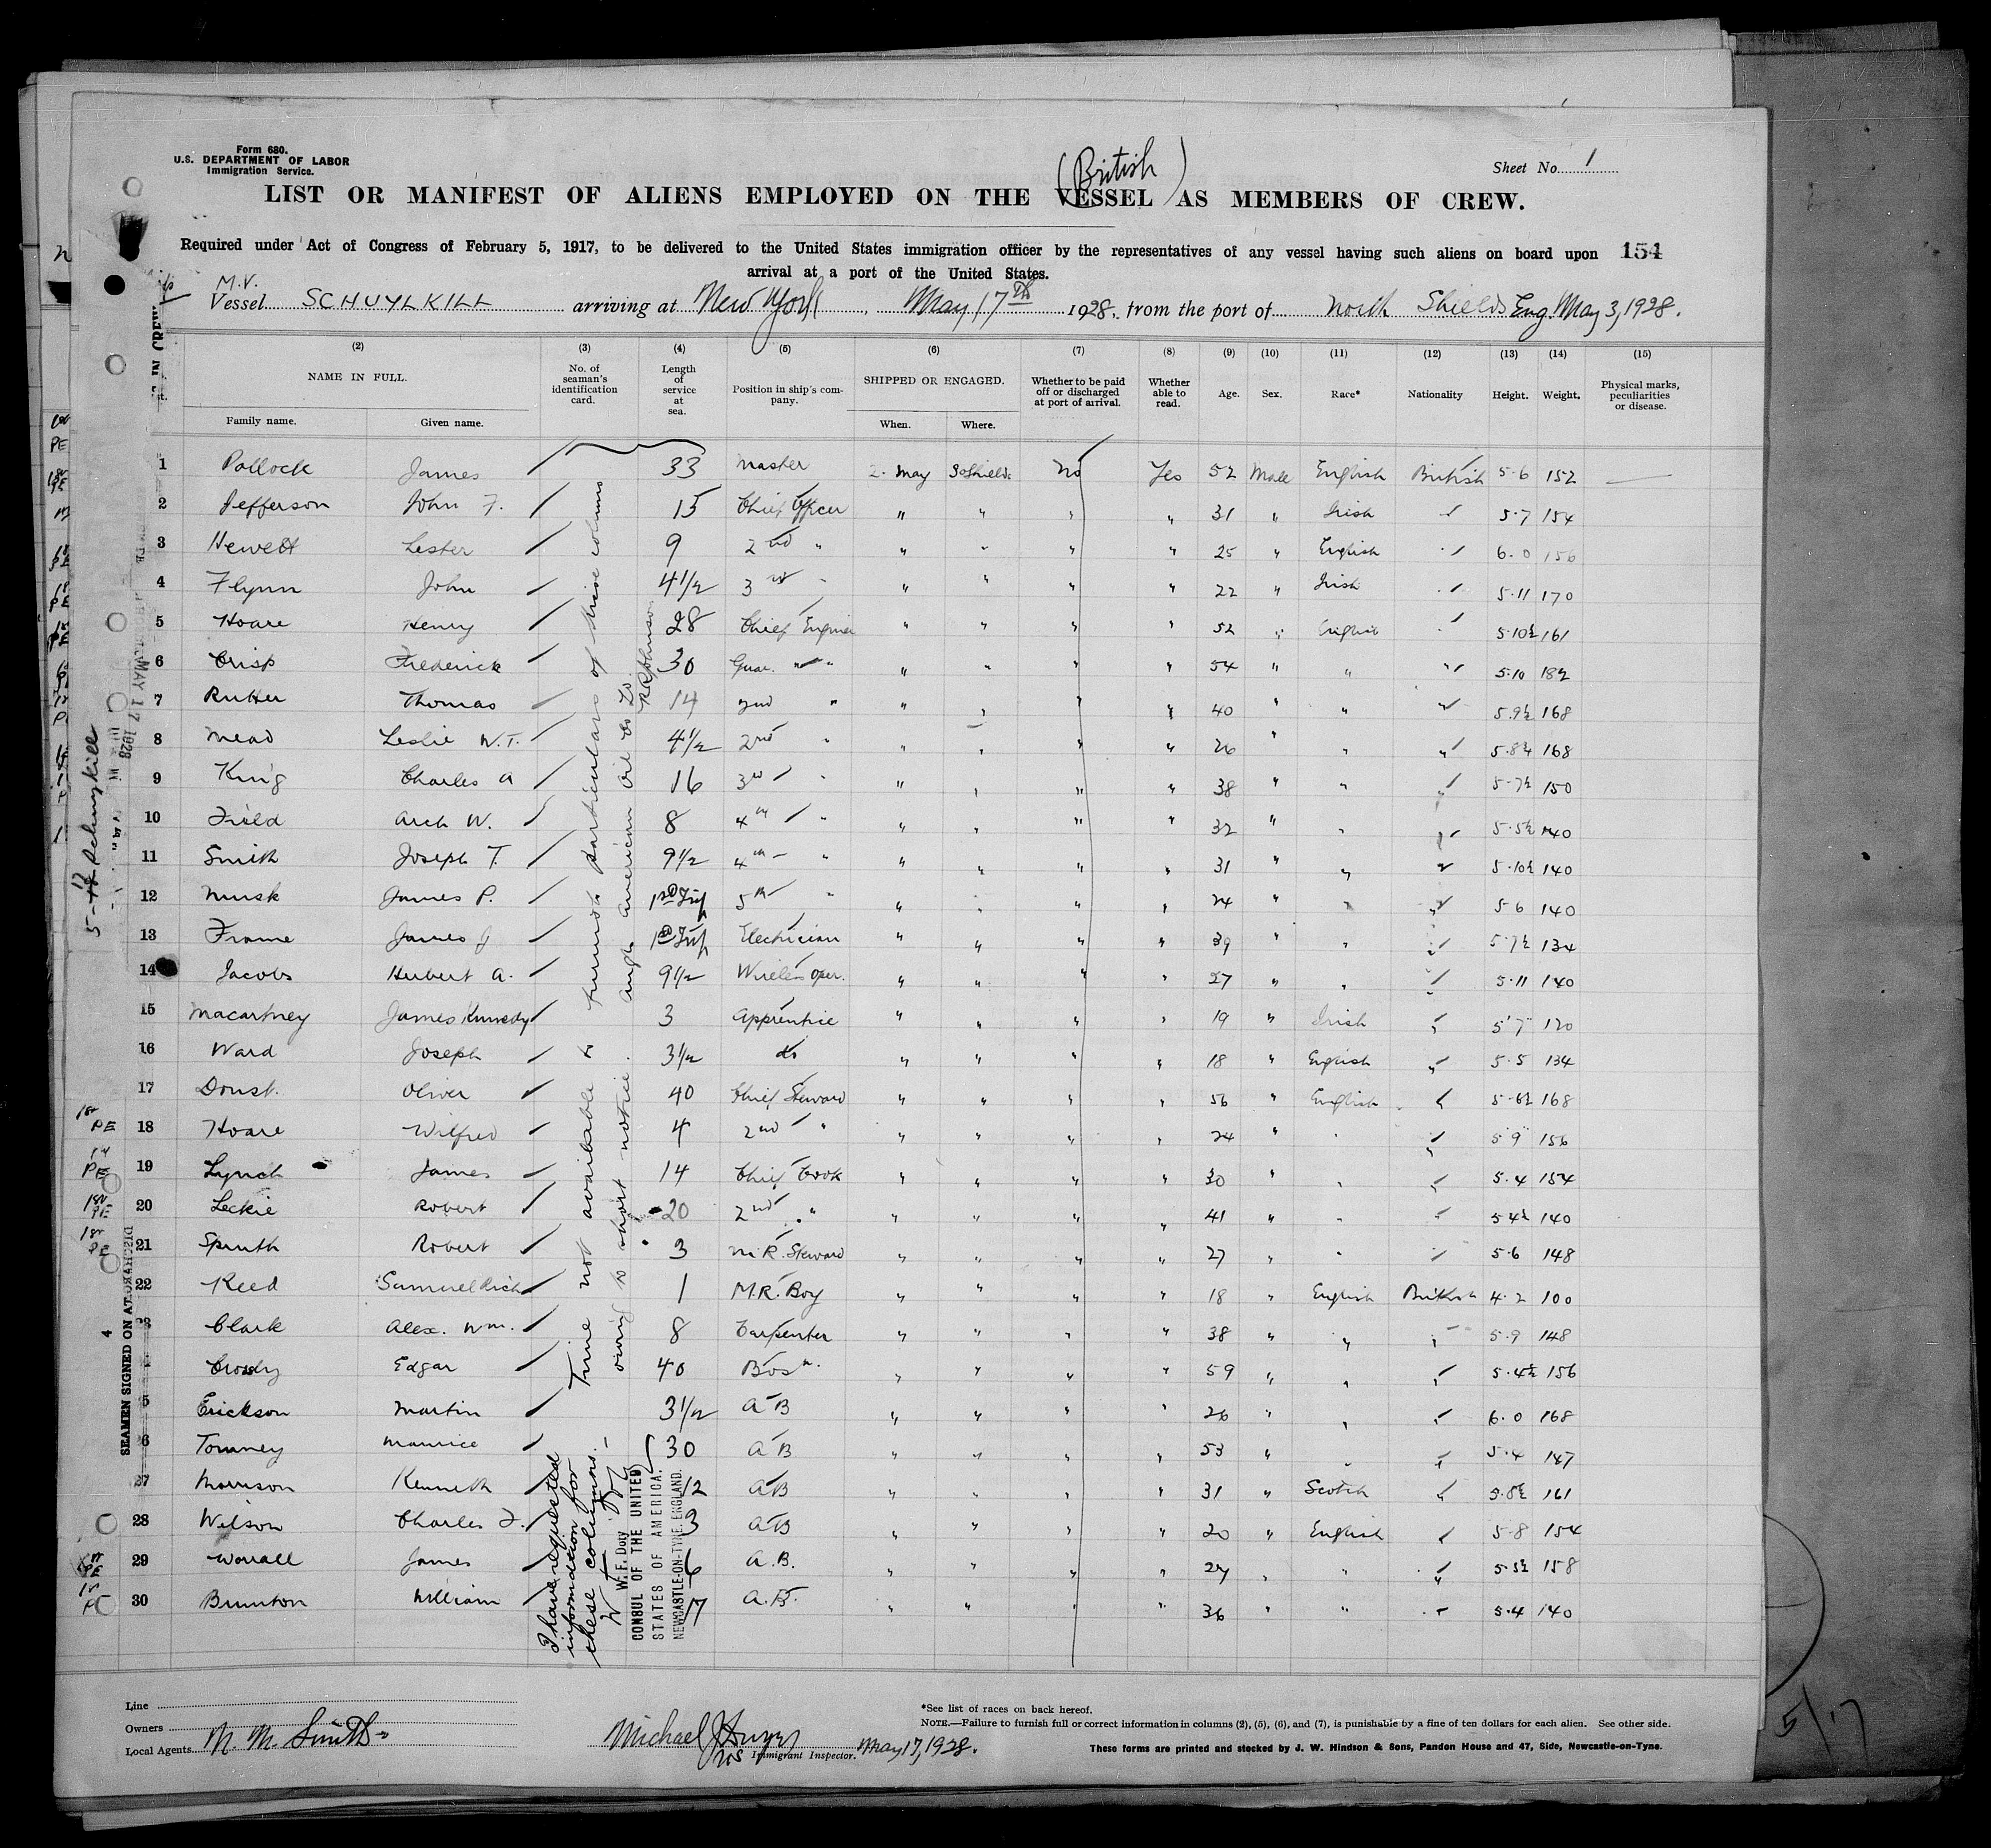 Form 680.
U.S. DEPARTMENT OF LABOR
Immigration Service.
Sheet No. 1
(British)
LIST OR MANIFEST OF ALIENS EMPLOYED ON THE VESSEL AS MEMBERS OF CREW.
Required under Act of Congress of February 5, 1917, to be delivered to the United States immigration officer by the representatives of any vessel having such aliens on board upon 154
arrival at a port of the United States.
M.V.
Vessel SCHUYLKILL arriving at New York, May 17th 1928. from the port of North Shields Eng. May 3, 1928.
(2) (3) (4) (5) (6) (7) (8) (9) (10) (11) (12) (13) (14) (15)
NAME IN FULL. Family name. Given name. No. of seaman's identification card. Length of service at sea. Position in ship's company. SHIPPED OR ENGAGED. When. Where. Whether to be paid off or discharged at port of arrival. Whether able to read. Age. Sex. Race* Nationality Height. Weight. Physical marks, peculiarities or disease.
1 Pollock James 33 Master 2. May So Shields No Yes 52 Male English British 5·6 152 —
2 Jefferson John F. 15 Chief Officer " " " " 31 " Irish " 5·7 154
3 Hewett Lester 9 2nd " " " " " 25 " English " 6·0 156
4 Flynn John 4½ 3rd " " " " " 22 " Irish " 5·11 170
5 Hoare Henry 28 Chief Engineer " " " " 52 " English " 5·10½ 161
6 Crisp Frederick 30 Guar. " " " " " 54 " " " 5·10 182
7 Rutter Thomas 14 2nd " " " " " 40 " " " 5·9½ 168
8 Mead Leslie W.T. 4½ 2nd " " " " " 26 " " " 5·8¾ 168
9 King Charles A 16 3rd " " " " " 38 " " " 5·7½ 150
10 Field Arch W. 8 4th " " " " " 32 " " " 5·5½ 140
11 Smith Joseph T. 9½ 4th " " " " " 31 " " " 5·10½ 140
12 Musk James P. 1st Trip 5th " " " " " 24 " " " 5·6 140
13 Frame James J 1st Trip Electrician " " " " 39 " " " 5·7½ 134
14 Jacobs Hubert A. 9½ Wireless Oper. " " " " 27 " " " 5·11 140
15 Macartney James Kennedy 3 Apprentice " " " " 19 " Irish " 5·7 120
16 Ward Joseph 3½ do " " " " 18 " English " 5·5 134
17 Doust Oliver 40 Chief Steward " " " " 56 " English " 5·6½ 168
18 Hoare Wilfred 4 2nd " " " " " 24 " " " 5·9 156
19 Lynch James 14 Chief Cook " " " " 30 " " " 5·4 154
20 Leckie Robert 20 2nd " " " " " 41 " " " 5·4½ 140
21 Robert 3 M.R. Steward " " " " 27 " " " 5·6 148
22 Reed Samuel Rich 1 M.R. Boy " " " " 18 " English British 4·2 100
23 Clark Alex. Wm. 8 Carpenter " " " " 38 " " " 5·9 148
Edgar 40 Bosn. " " " " 59 " " " 5·4½ 156
5 Erickson Martin 3½ AB " " " " 26 " " " 6·0 168
26 Tommey Maurice 30 AB " " " " 53 " " " 5·4 147
27 Morrison Kenneth 12 AB " " " " 31 " Scotch " 5·8½ 161
28 Wilson Charles F. 3 AB " " " " 20 " English " 5·8 154
29 Worrall James 6 A.B. " " " " 27 " " " 5·3½ 158
30 Brunton William 17 A.B. " " " " 36 " " " 5·4 140
Time not available to furnish particulars of these columns
owing to short notice. Anglo American Oil Co Ld.
I have requested
information for
these columns.
W. F. Doty
CONSUL OF THE UNITED
STATES OF AMERICA.
NEWCASTLE-ON-TYNE, ENGLAND.
5-17 Schuylkill
MAY 17 1928
SEAMEN SIGNED ON AT
DISCHARGED AT
4
Line
Owners
Local Agents M. M. Smith
Michael
Immigrant Inspector. May 17, 1928.
*See list of races on back hereof.
NOTE.—Failure to furnish full or correct information in columns (2), (5), (6), and (7), is punishable by a fine of ten dollars for each alien. See other side.
These forms are printed and stocked by J. W. Hindson & Sons, Pandon House and 47, Side, Newcastle-on-Tyne.
5/17